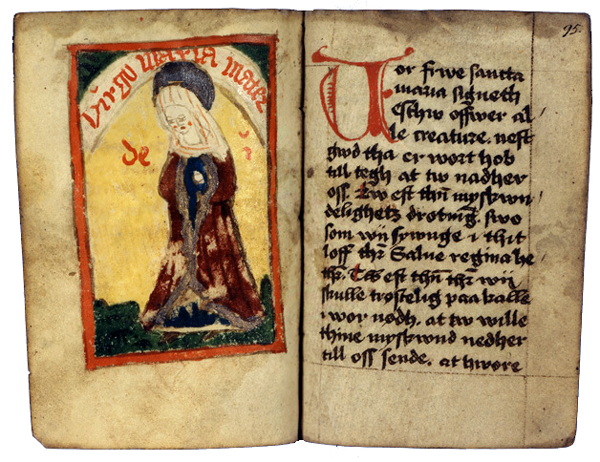 virgo maria mater
de i
95.
Vor frwe sancta
maria signeth
eschw offwer al
le creature. nest
gwd tha er wort hob
till tegh at tw nadher
oss. Tw est thin myskwn
delighetz drotning. swo
som wij sywnge i thit
loff thz Salue regina he
thz. Tw est thn thz wij
skulle trostelig paa kalle
i wor nodh. at tw wille
thine myskwnd nedher
till oss sende. at hwore